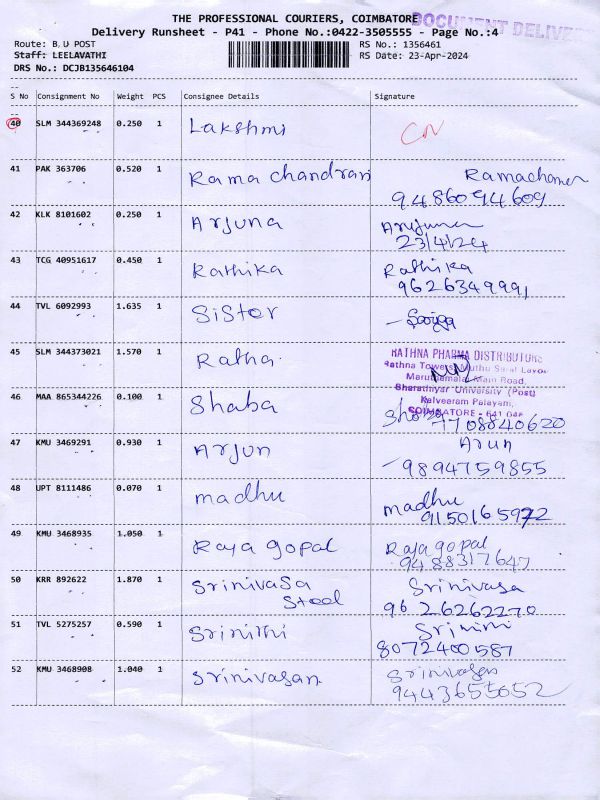 THE PROFESSIONAL COURIERS, COIMBATORE
DOCUMENT DELIVE
Delivery Runsheet - P41 - Phone No.:0422-3505555 - Page No.:4
Route: B.U POST
RS No.: 1356461
Staff: LEELAVATHI
RS Date: 23-Apr-2024
DRS No.: DCJB135646104
S No Consignment No Weight PCS Consignee Details Signature
40 SLM 344369248 0.250 1 Lakshmi CN
41 PAK 363706 0.520 1 Rama chandran
9486094609
42 KLK 8101602 0.250 1 Arjuna Arujuna
23/4/24
43 TCG 40951617 0.450 1 Rathika Rathika
9626349991
44 TVL 6092993 1.635 1 Sister
45 SLM 344373021 1.570 1 Ratha
RATHNA PHARMA DISTRIBUTORS
Rathna Towers, Muthu Layout
Maruthamalai Main Road,
Bharathiyar University (Post)
Kalveeram Palayam,
COIMBATORE - 641 046
46 MAA 865344226 0.100 1 Shaba
7708840620
47 KMU 3469291 0.930 1 Arjun Arun
9894759855
48 UPT 8111486 0.070 1 madhu madhu
9150165972
49 KMU 3468935 1.050 1 Raja gopal Raja gopal
9488317647
50 KRR 892622 1.870 1 Srinivasa Srinivasa
Steel 9626262270
51 TVL 5275257 0.590 1 Srinithi
8072400587
52 KMU 3468908 1.040 1 Srinivasan Srinivasan
9443655052